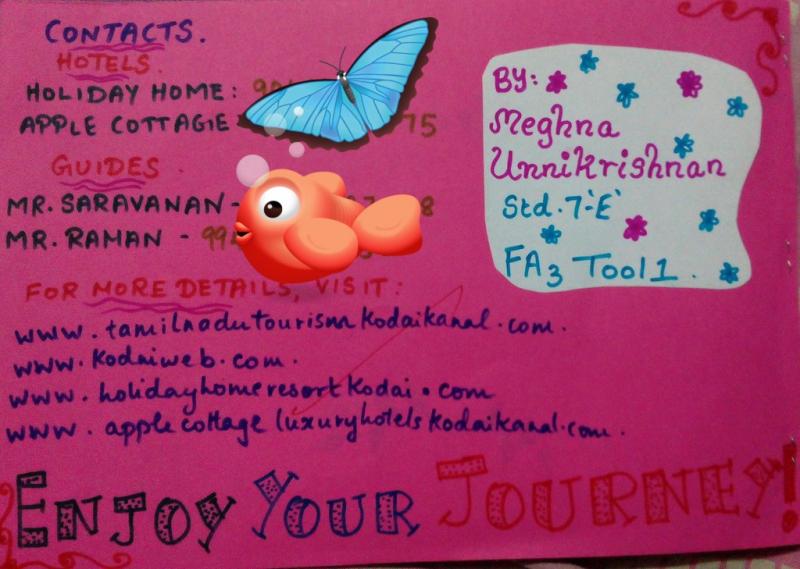 CONTACTS.
HOTELS.
HOLIDAY HOME:
APPLE COTTAGE
GUIDES
MR. SARAVANAN -
MR. RAMAN -
FOR MORE DETAILS, VISIT:
www.tamilnadutourismkodaikanal.com.
www.kodaiweb.com.
www.holidayhomeresortkodai.com
www.applecottageluxuryhotelskodaikanal.com.
ENJOY YOUR JOURNEY!
BY:
Meghna
Unnikrishnan
Std. 7-'E'
FA3 Tool 1.